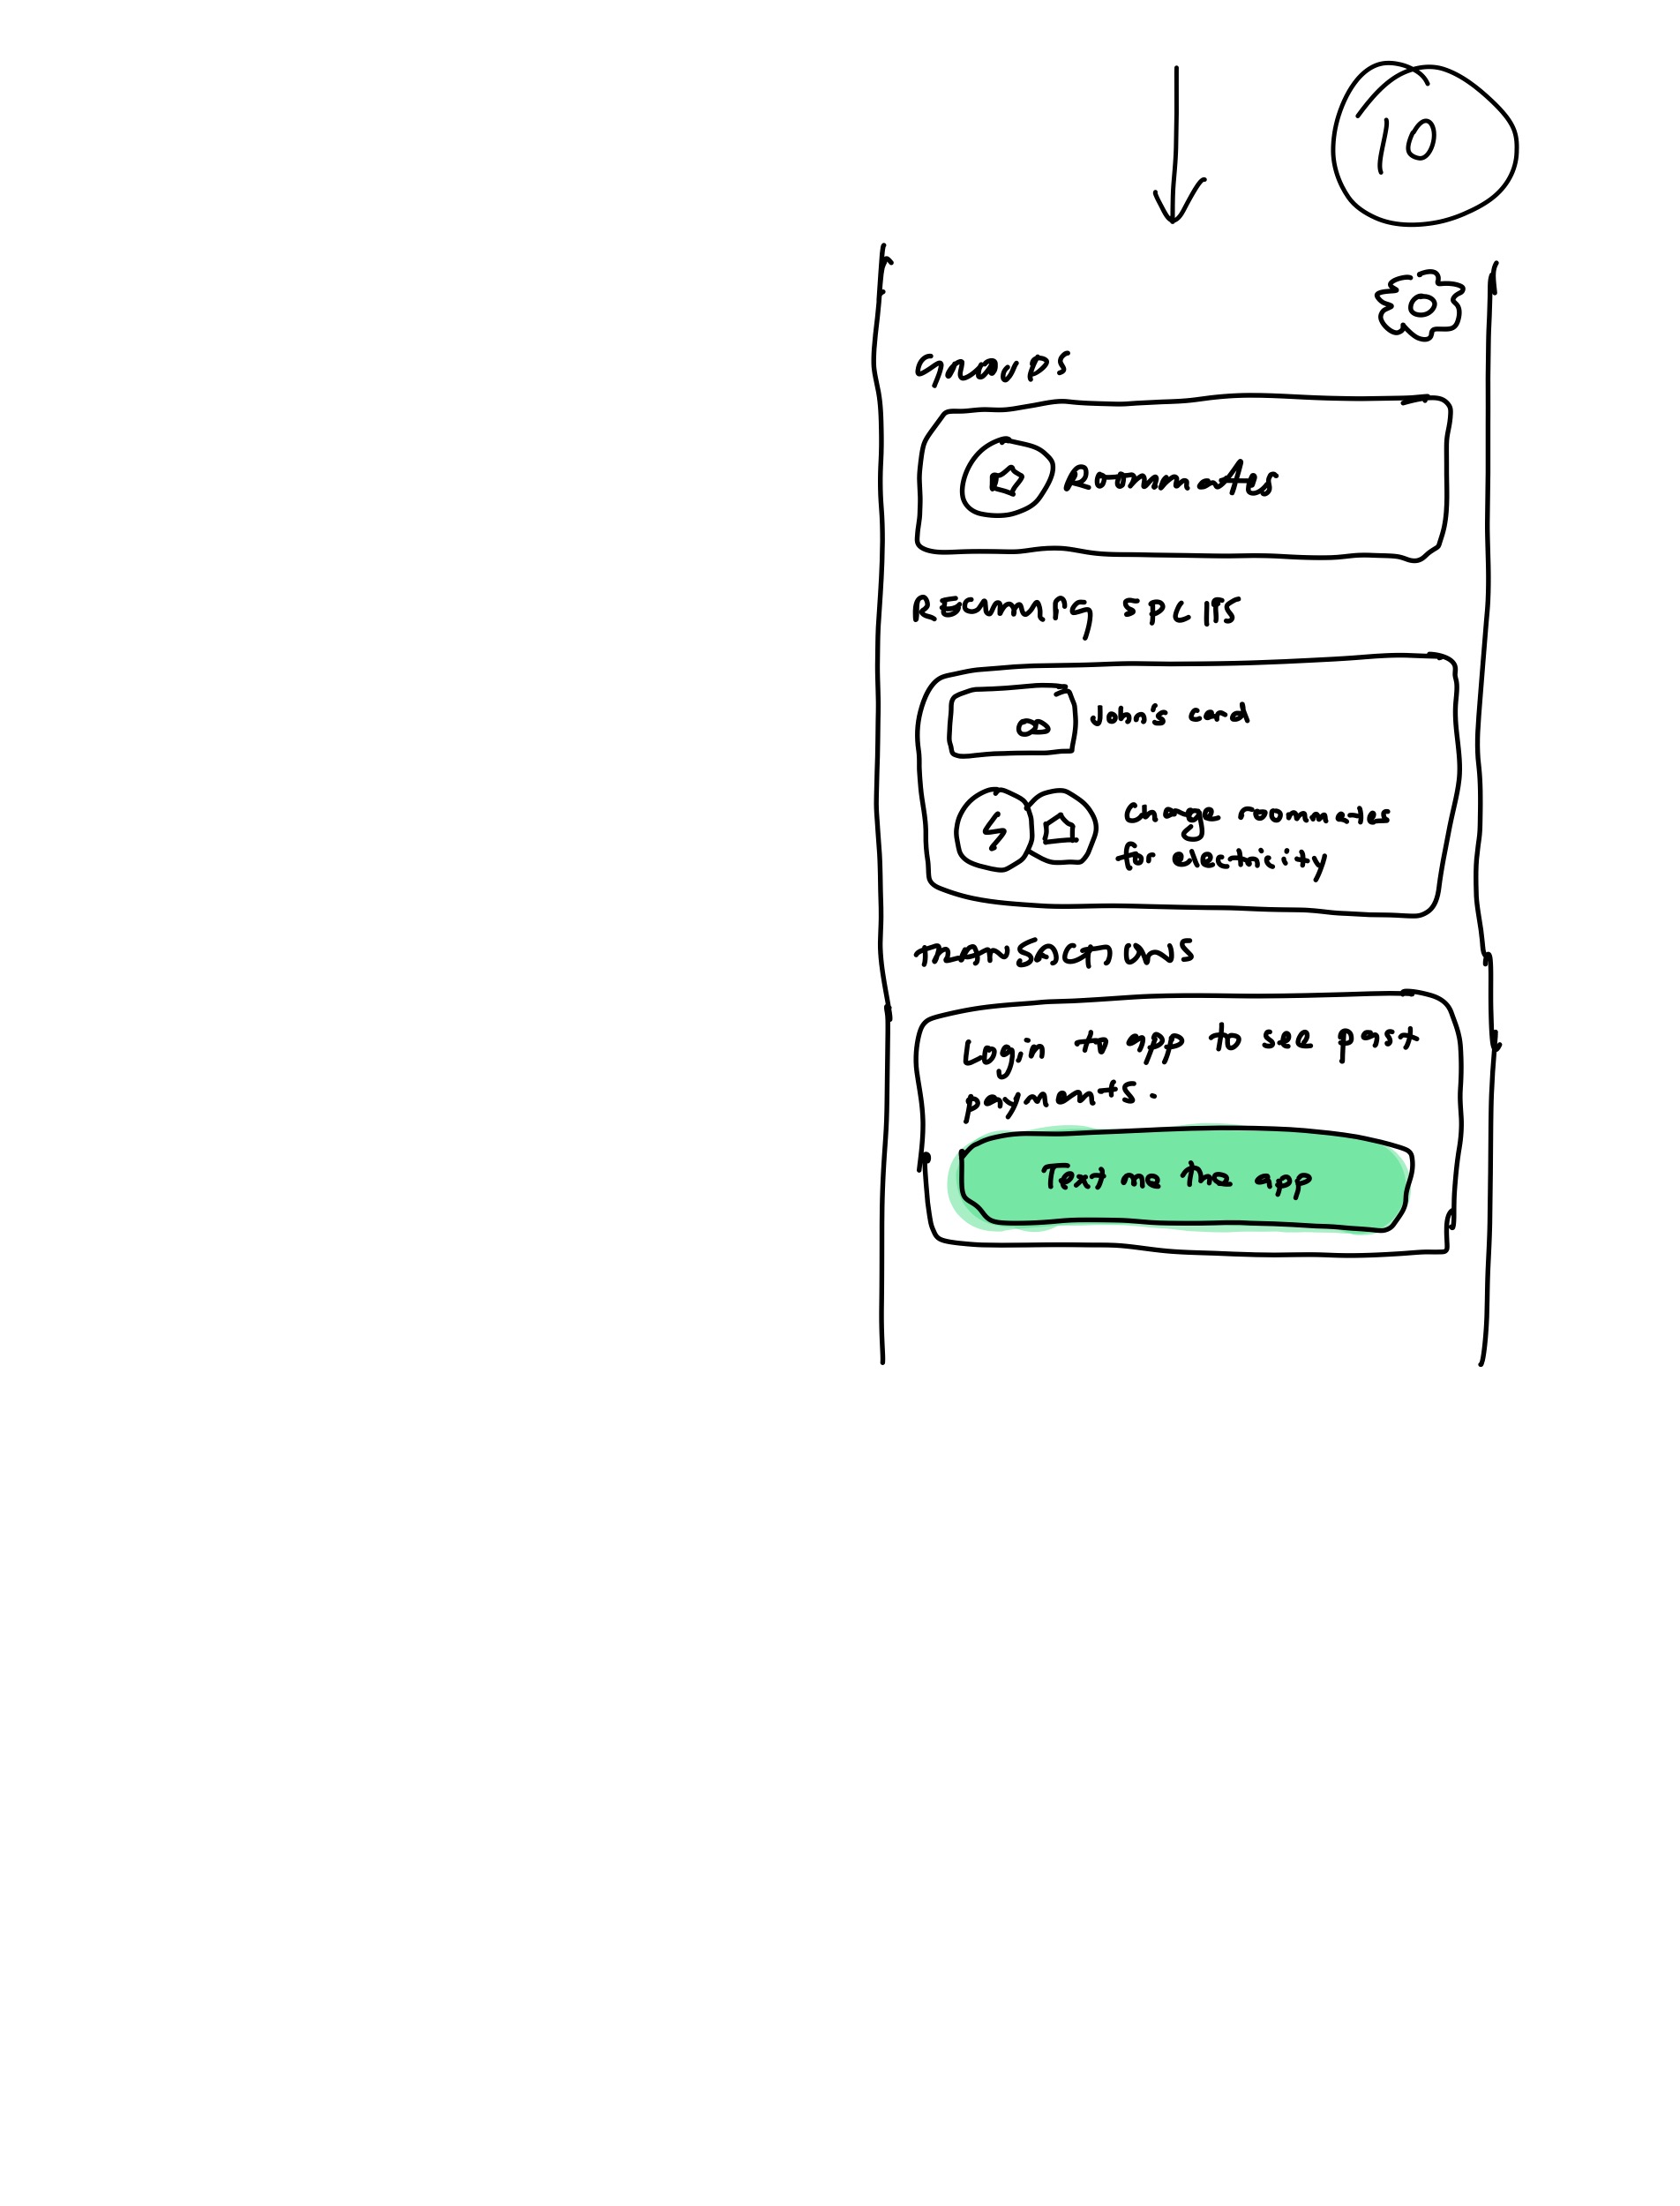 10
GROUPS
Roommates
RECURRING SPLITS
John's card
Charge roommates
for electricity
TRANSACTIONS
Login to app to see past
payments.
Text me the app